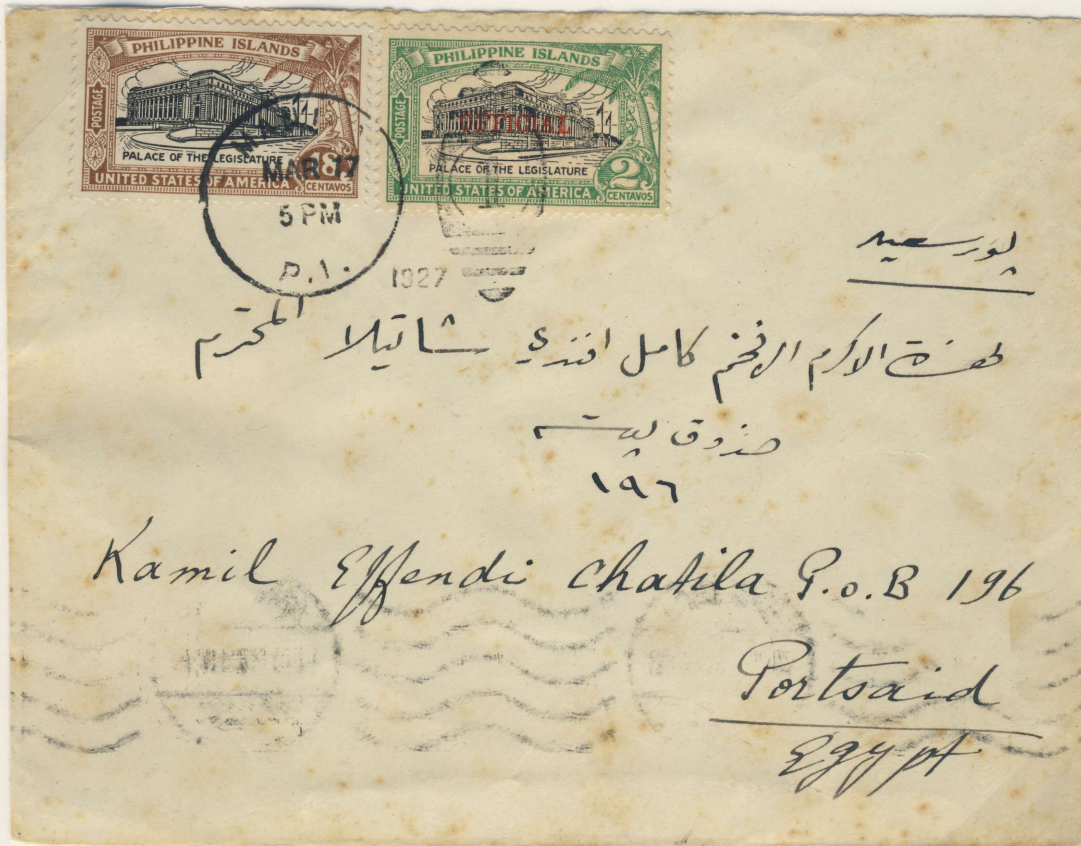 PHILIPPINE ISLANDS
POSTAGE
PALACE OF THE LEGISLATURE
UNITED STATES OF AMERICA
18 CENTAVOS
PHILIPPINE ISLANDS
POSTAGE
OFFICIAL
PALACE OF THE LEGISLATURE
UNITED STATES OF AMERICA
2 CENTAVOS
MAR 17
5 PM
P.I.
1927
پور سعيد
حضرة الاكرم الافخم كامل افندي شاتيلا المحترم
صندوق بوسته
١٩٦
Kamil Effendi Chatila P.o.B 196
Portsaid
Egypt